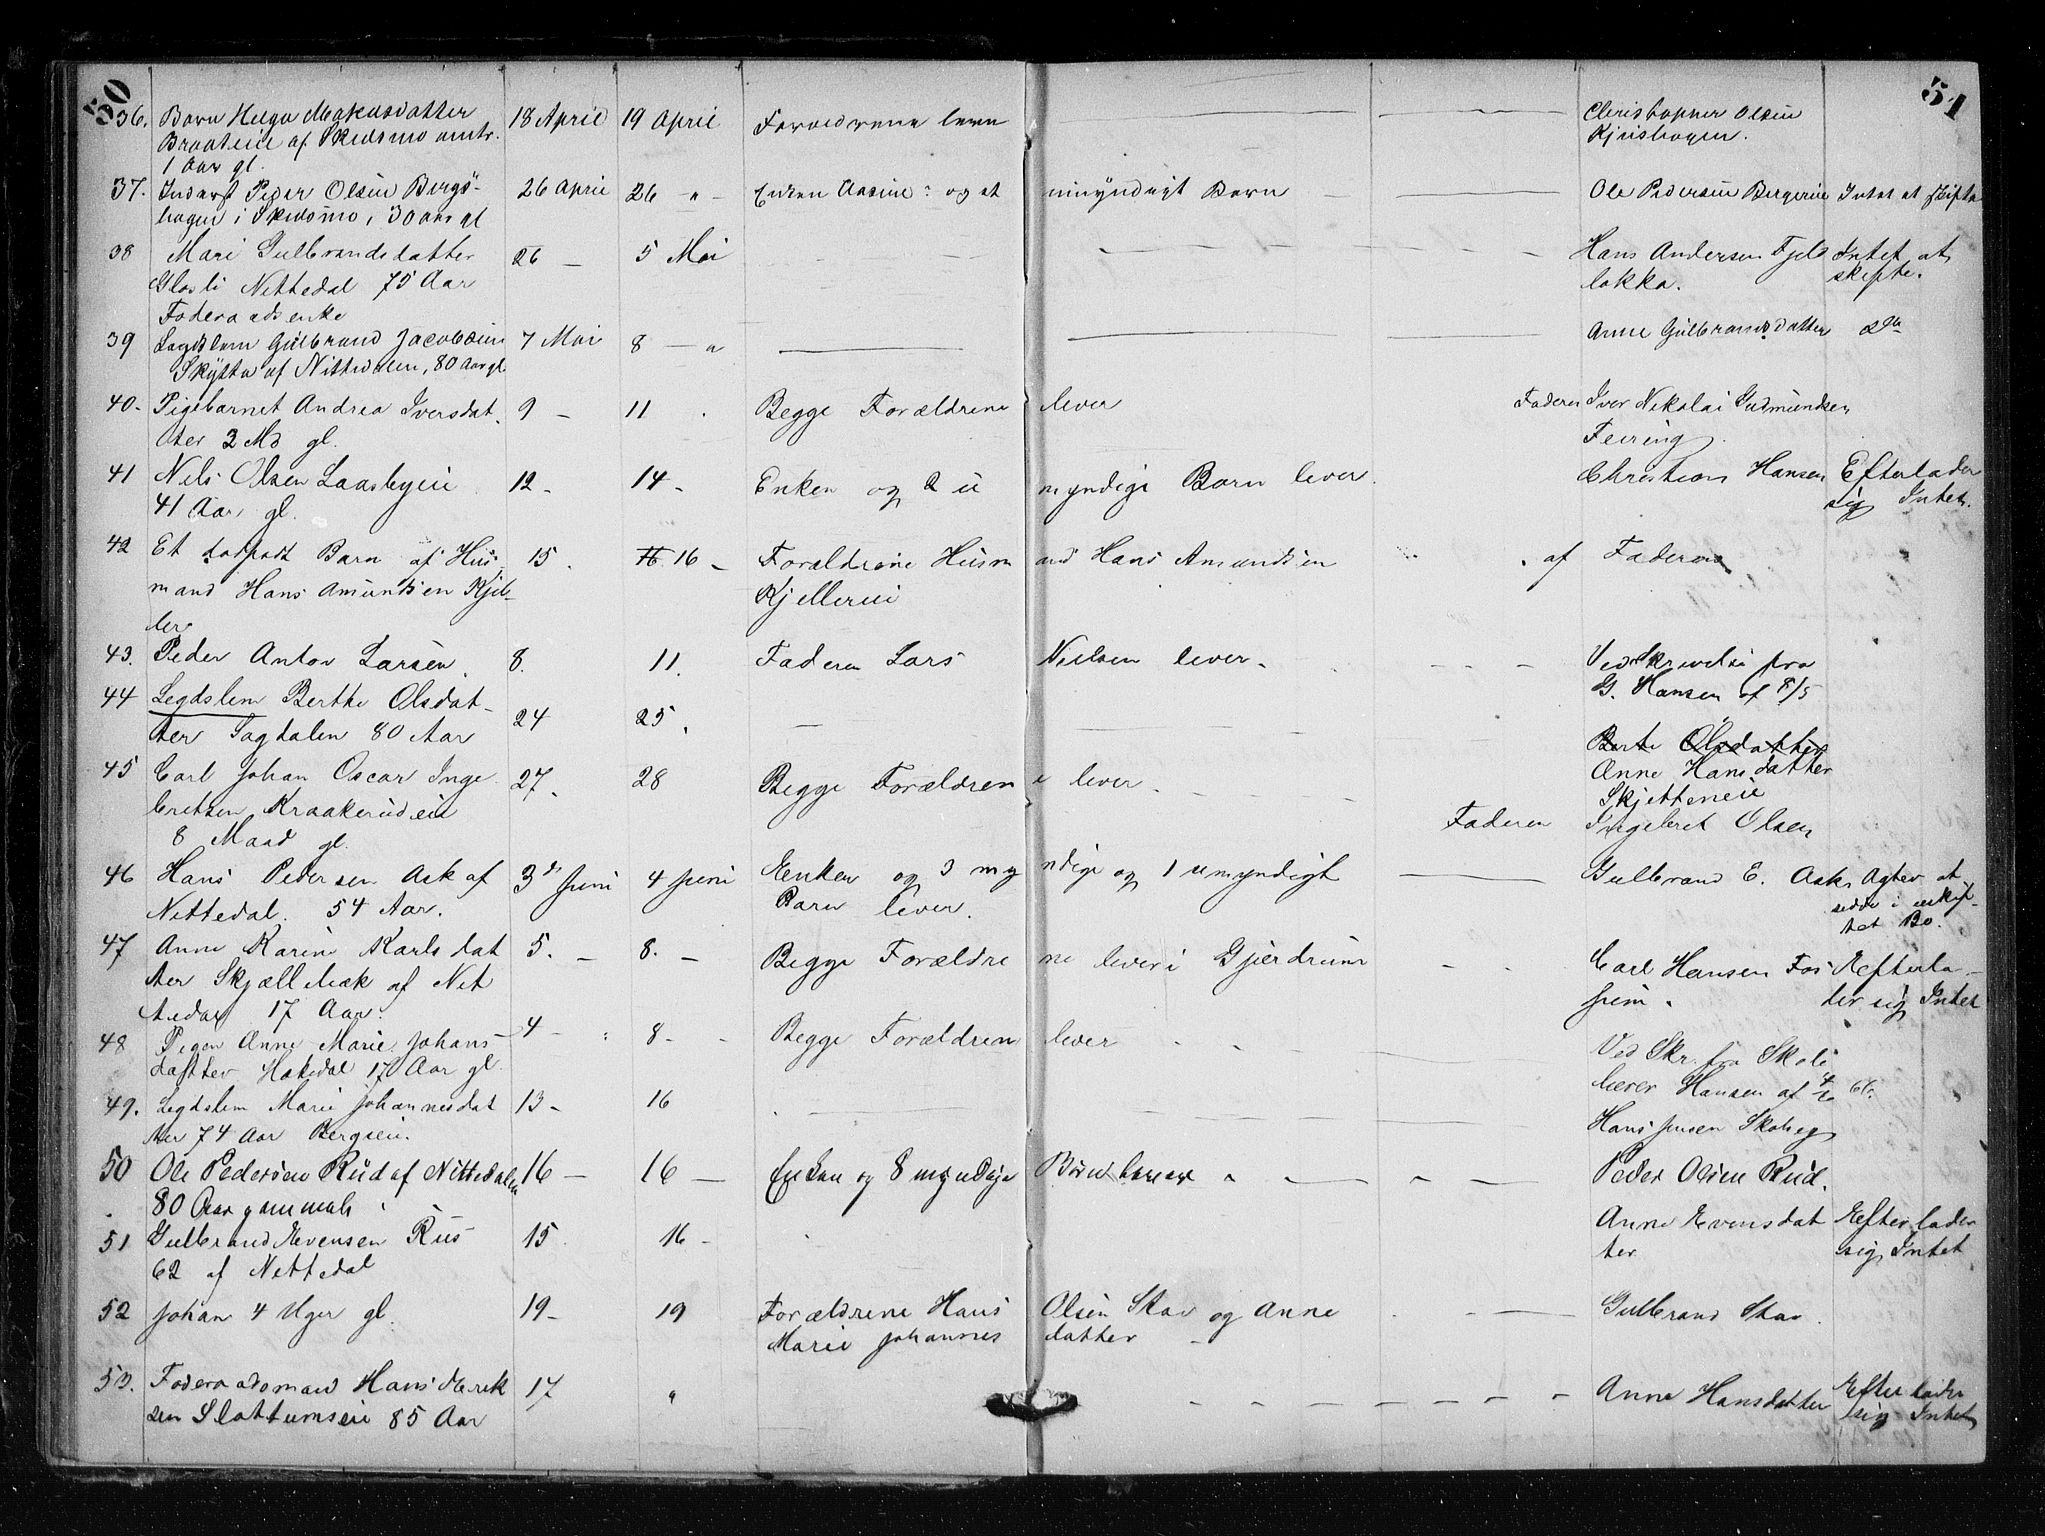 50
51
36. Barn Helga Markusdatter 18 April 19 April Forældrene leve Christopher Olsen
Braateie af Skedsmo omtr. Kjushagen.
1 Aar gl.
37. Inderst Peder Olsen Bergs- 26 April 26 " - Enken Aasine og et umyndigt Barn Ole Pedersen Bergerie Intet at skifte
hagen i Skedsmo, 30 aar gl
38 Mari Gulbrandsdatter 26 - 5 Mai Hans Andersen Fjeld Intet at
Glosli Nittedal 75 Aar løkka. skifte.
Føderaadsenke
39 Lægdslem Gulbrand Jacobsen 7 Mai 8 - " Anne Gulbrandsdatter do
Skytta af Nittedalen, 80 Aar gl
40. Pigebarnet Andrea Iversdat 9 - 11 Begge Forældrene lever Faderen Iver Nikolai Gudmundsen
ter 2 Md gl. Feiring
41 Nils Olsen Laasbyeie 12 - 14 - Enken og 2 umyndige Børn lever Christian Hansen Efterlader
41 Aar gl. sig Intet.
42 Et dødfødt Barn af Hus 15. 16 16 - Forældrene Husmand Hans Amundsen af Faderen
mand Hans Amundsen Kjel- Kjellereie
ler
43. Peder Anton Larsen 8. 11. Faderen Lars Nielsen lever. Ved Skrivelse fra
G. Hansen af 8/5
44 Legdslem Berthe Olsdat- 24 25.
ter Sagdalen 80 Aar Berte Olsdatter
45 Carl Johan Oscar Inge 27. 28 Begge Forældrene lever Anne Hansdatter
Skjetteneie
bretsen Kraakerudeie Faderen Ingebret Olsen
8 Maad gl.
46 Hans Pedersen Ask af 3de Juni 4 Juni Enken og 3 myndige og 1 umyndigt Gulbrand E. Ask Agter at
Nittedal. 54 Aar. Barn lever. sidde i uskif-
tet Bo.
47 Anne Karine Karlsdat 5. - 8. - Begge Forældrene lever i Gjerdrum Carl Hansen Fos Efterla-
ter Skjællebæk af Nit der sig Intet
tedal 17 Aar.
48 Pigen Anne Marie Johans- 4 - 8 - Begge Forældren lever Ved Skr. fra Skole
datter Hakedal 17 Aar gl. lærer Hansen af 4/6 64.
49. Legdslem Marie Johannesdat 13 - 16 Hans Jensen Skoleg
ter 74 Aar Bergseie.
50 Ole Pedersen Rud af Nittedalen 16 - 16 - Enken og 8 myndige Børn lever Peder Olsen Rud.
80 Aar gammel
51 Gulbrand Evensen Rus 15 16 - Anne Evensdat Efterlader
62 af Nittedal ter sig Intet
52 Johan 4 Uger gl. 19 - 19 Forældrene Hans Olsen Stav og Anne Gulbrand Stav
Marie Johannesdatter
53. Føderaadsmand Hans Henrik 17 " Anne Hansdatter Efterlader
sen Slattumseie 85 Aar sig Intet